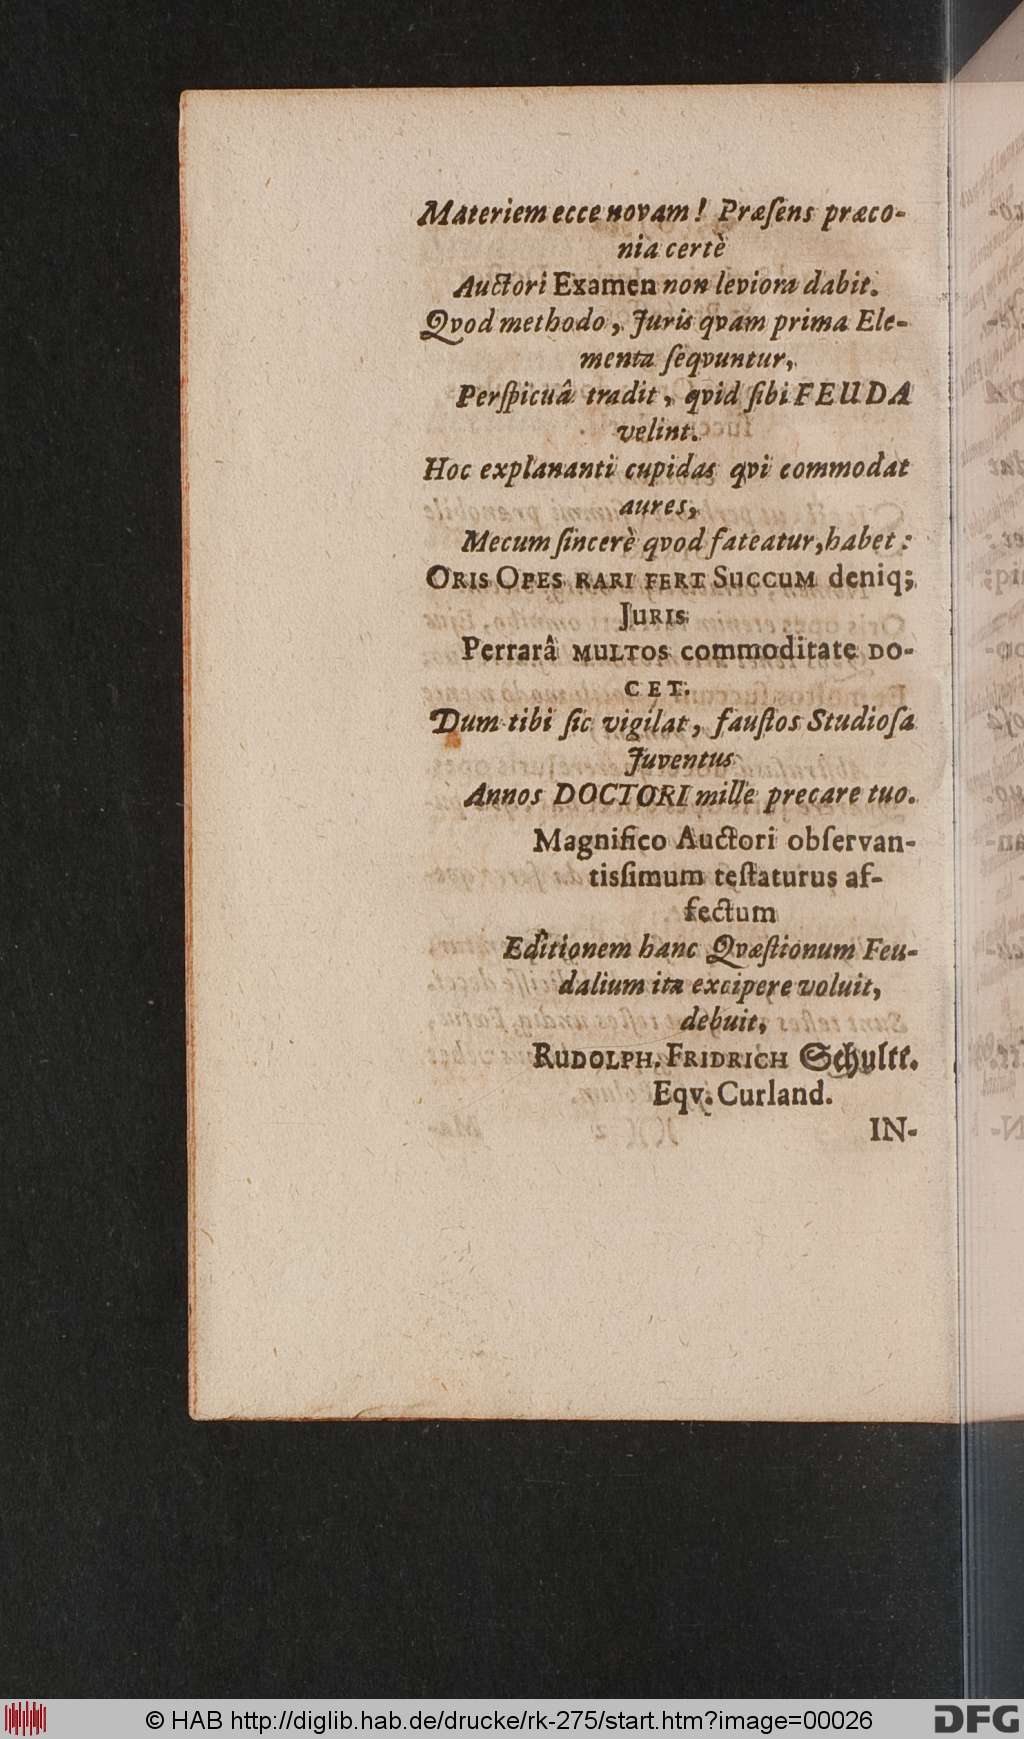 Materiem ecce novam! Præſens præco-
nia certè
Auctori Examen non leviora dabit.
Qvod methodo, Juris qvam prima Ele-
menta ſeqvuntur,
Perſpicuâ tradit, qvid ſibi FEUDA
velint.
Hoc explananti cupidas qvi commodat
aures,
Mecum ſincerè qvod fateatur, habet:
ORIS OPES RARI FERT SUCCUM deniq;
JURIS
Perrarâ MULTOS commoditate DO-
CET.
Dum tibi ſic vigilat, fauſtos Studioſa
Juventus
Annos DOCTORI mille precare tuo.
Magnifico Auctori obſervan-
tisſimum teſtaturus af-
fectum
Editionem hanc Qvæſtionum Feu-
dalium ita excipere voluit,
debuit,
RUDOLPH. FRIDRICH Schultt.
Eqv. Curland.
IN-
© HAB http://diglib.hab.de/drucke/rk-275/start.htm?image=00026
DFG